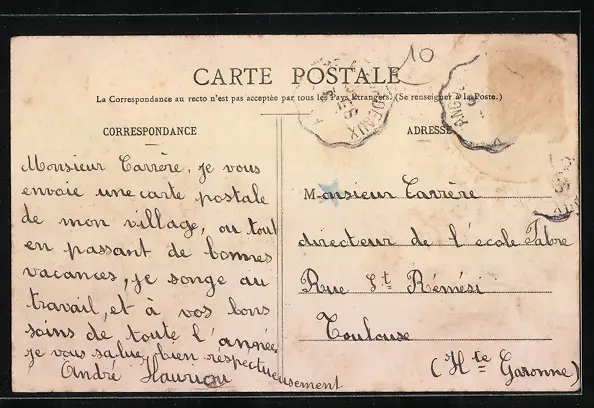 10
CARTE POSTALE
La Correspondance au recto n'est pas acceptée par tous les Pays Etrangers. (Se renseigner à la Poste.)
CORRESPONDANCE
Monsieur Carrère, je vous
envoie une carte postale
de mon village, ou tout
en passant de bonnes
vacances, je songe au
travail, et à vos bons
soins de toute l'année
je vous salue bien respectueusement
André Hauriou
ADRESSE
Monsieur Carrère
directeur de l'école Fabre
Rue St Rémési
Toulouse
(Hte Garonne)